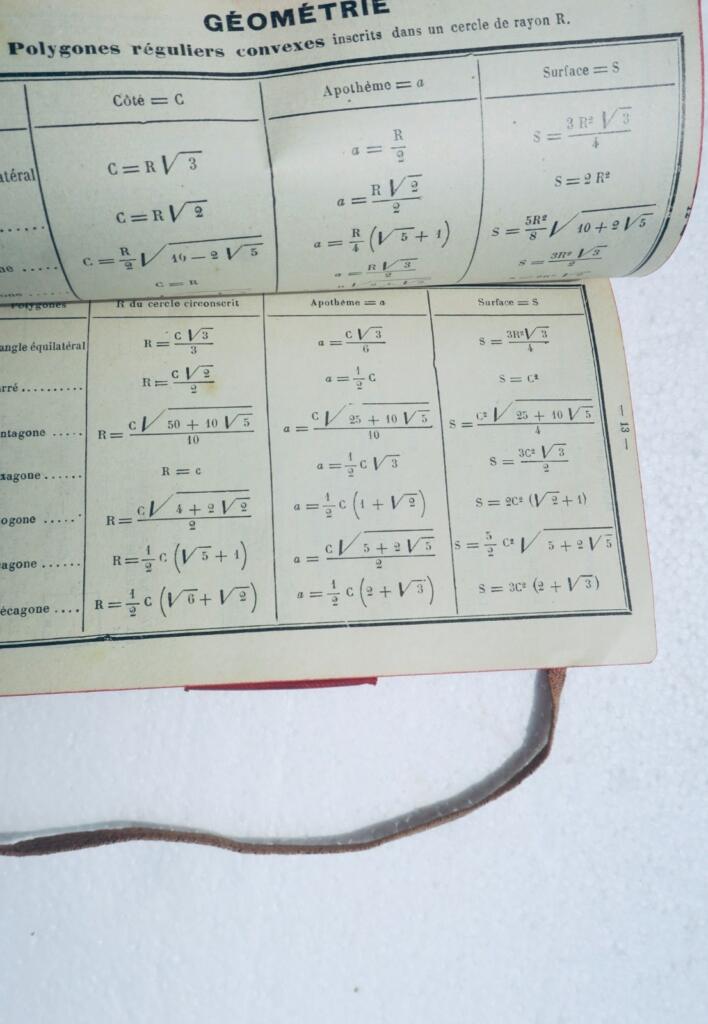 GÉOMÉTRIE
Polygones réguliers convexes inscrits dans un cercle de rayon R.
Côté = C Apothème = a Surface = S
atéral C = R √3 a = R/2 S = 3 R² √3/4
..... C = R √2 a = R √2/2 S = 2 R²
ne .... C = R/2 √10 − 2 √5 a = R/4 (√5 + 1) S = 5R²/8 √10 + 2 √5
C = R a = R √3/2 S = 3R² √3/2
Polygones R du cercle circonscrit Apothème = a Surface = S
angle équilatéral R = C √3/3 a = C √3/6 S = 3R² √3/4
rré .......... R = C √2/2 a = 1/2 C S = C²
ntagone ..... R = C √50 + 10 √5/10 a = C √25 + 10 √5/10 S = C² √25 + 10 √5/4
xagone ...... R = C a = 1/2 C √3 S = 3C² √3/2
ogone ..... R = C √4 + 2 √2/2 a = 1/2 C (1 + √2) S = 2C² (√2 + 1)
agone ...... R = 1/2 C (√5 + 1) a = C √5 + 2 √5/2 S = 5/2 C² √5 + 2 √5
écagone .... R = 1/2 C (√6 + √2) a = 1/2 C (2 + √3) S = 3C² (2 + √3)
— 13 —